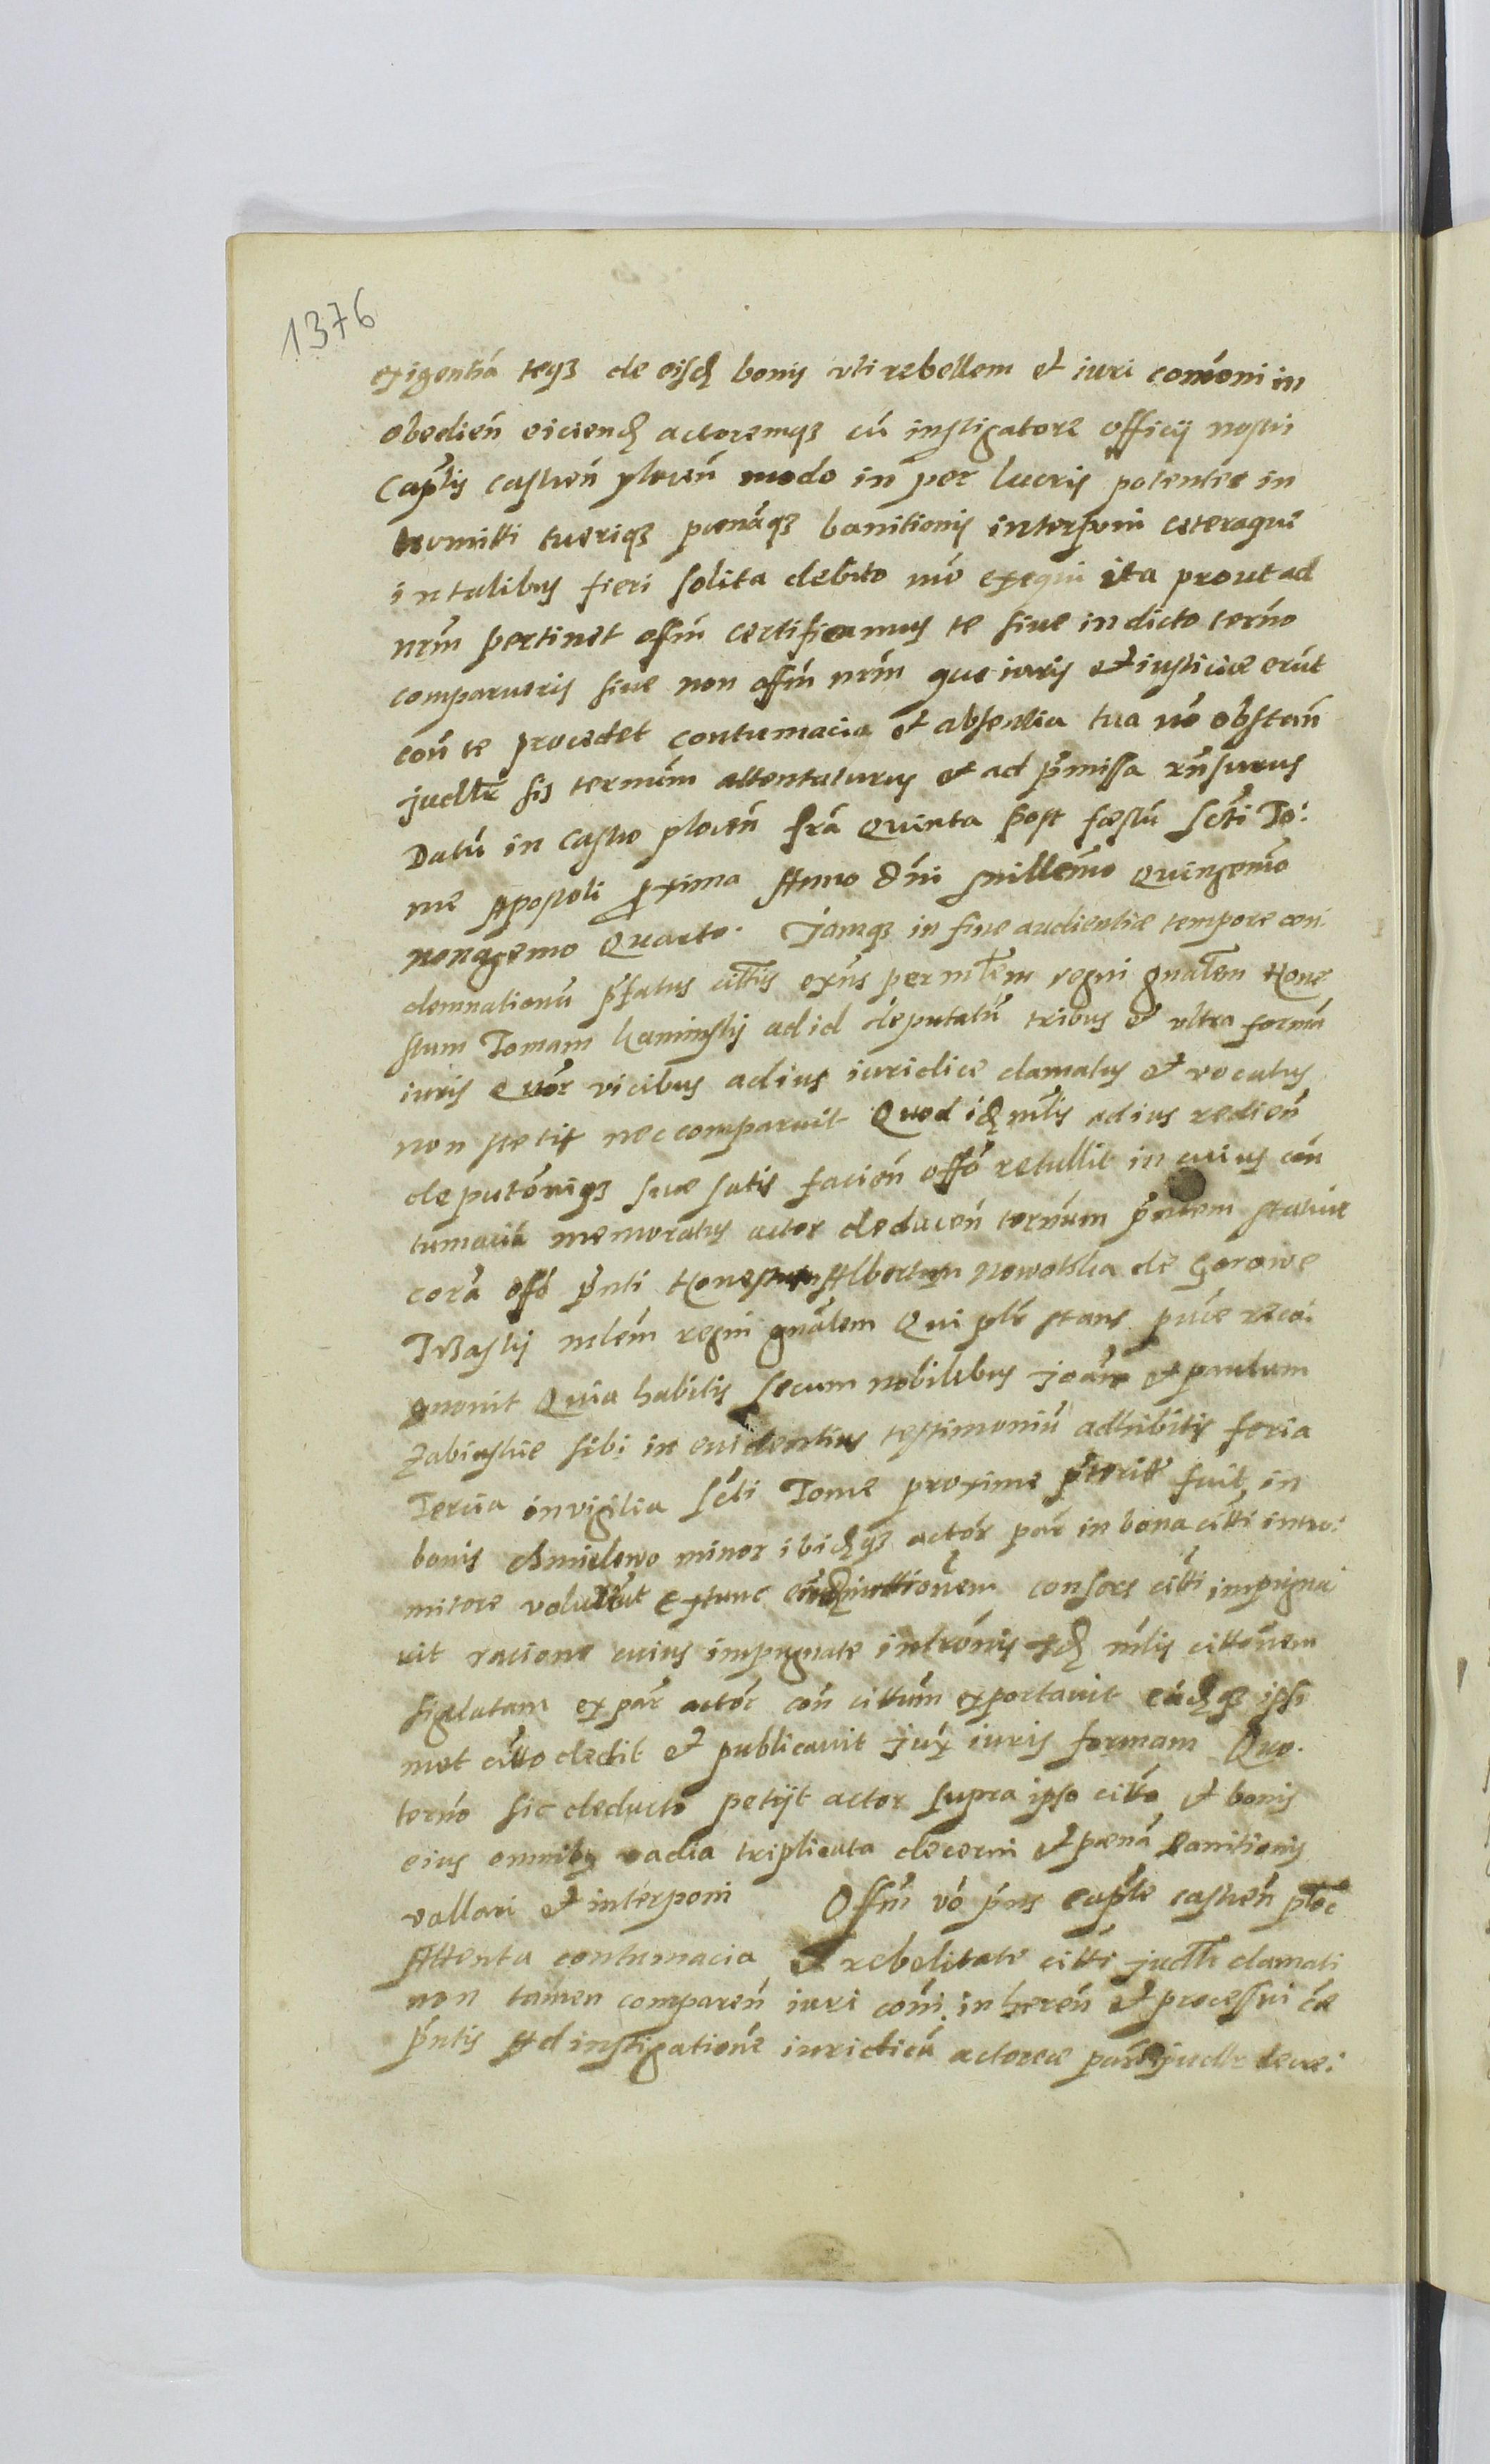 1376
exigentiá teqz de eisd bonis uti rebellem et iuri comóni in
obedień eiciend actoremqz cú instigatore officij nostri
Cap̃lis castreń ploceń modo in per lucris potenter in
tromitti tueriqz poenáqz banitionis interponi ceteraque
in talibus fieri solita debito mó exequi ita prout ad
nrm̃ pertinet offm̃ certificamus te sive in dicto termo
comparueris sive non offm̃ nrm̃ que iuris et iusticiae erút
coń te procedet contumacia et absentia tua nó obstań
judlr̃ sis termúm attentaturus et ad p̃missa rñsurus
Datú in castro ploceń frã Quinta post festú scti To:
me Apostoli proxima Anno Dñi millemo quingemo
nonagemo Quarto. Jamqz in fine audientiae tempore con:
demnationú p̃fatus cittus exñs per mlem̃ regni gñalem Hone
stum Tomam kaminskij ad id deputatú tribus et ultra formá
iuris quór vicibus ad ius iuridice clamatus et vocatus
non stetit nec comparuit Quod id mlis ad ius redień
deputóniqz suae satis facień offó retullit in cuius con
tumaciá memoratus actor deduceń termum p̃ntem statuit
corá offó p̃nti Honestum Albertum Nowotka de Gorowe
Traskij mlem̃ regni gñalem Qui plr̃ stans puce reco:
gnouit Quia habitis secum nobilibus joañe et paulum
Zabieskie sibi in evidentius testimoniú adhibitis feria
Tercia in vigilia scti Tome proxime p̃terit fuit in
bonis chmielewo minor ibidqz actor par in bona citti intro:
mitere voluit Extunc intromittionem consors citti impugna
vit racione cuius impugnate intrónis id mlis cittónem
siglatam ex par actor coń cittum exportauit eádqz ipsi
met citto dedit et publicauit jux iuris formam Quo.
termo sic deducto petijt actor supra ipso citto et bonis
eius omnibus vadia triplicata decerni et poená banitionis
vallari et interponi Offm̃ vó p̃ns cap̃le castreń ploc
Attenta contumacia Et rebelitate citti judlr clamati
non tamen compareń iuri coḿi inhereń et processui cáe
p̃ntis Ad instigatione iuridicá actoreae partis judlr decre: